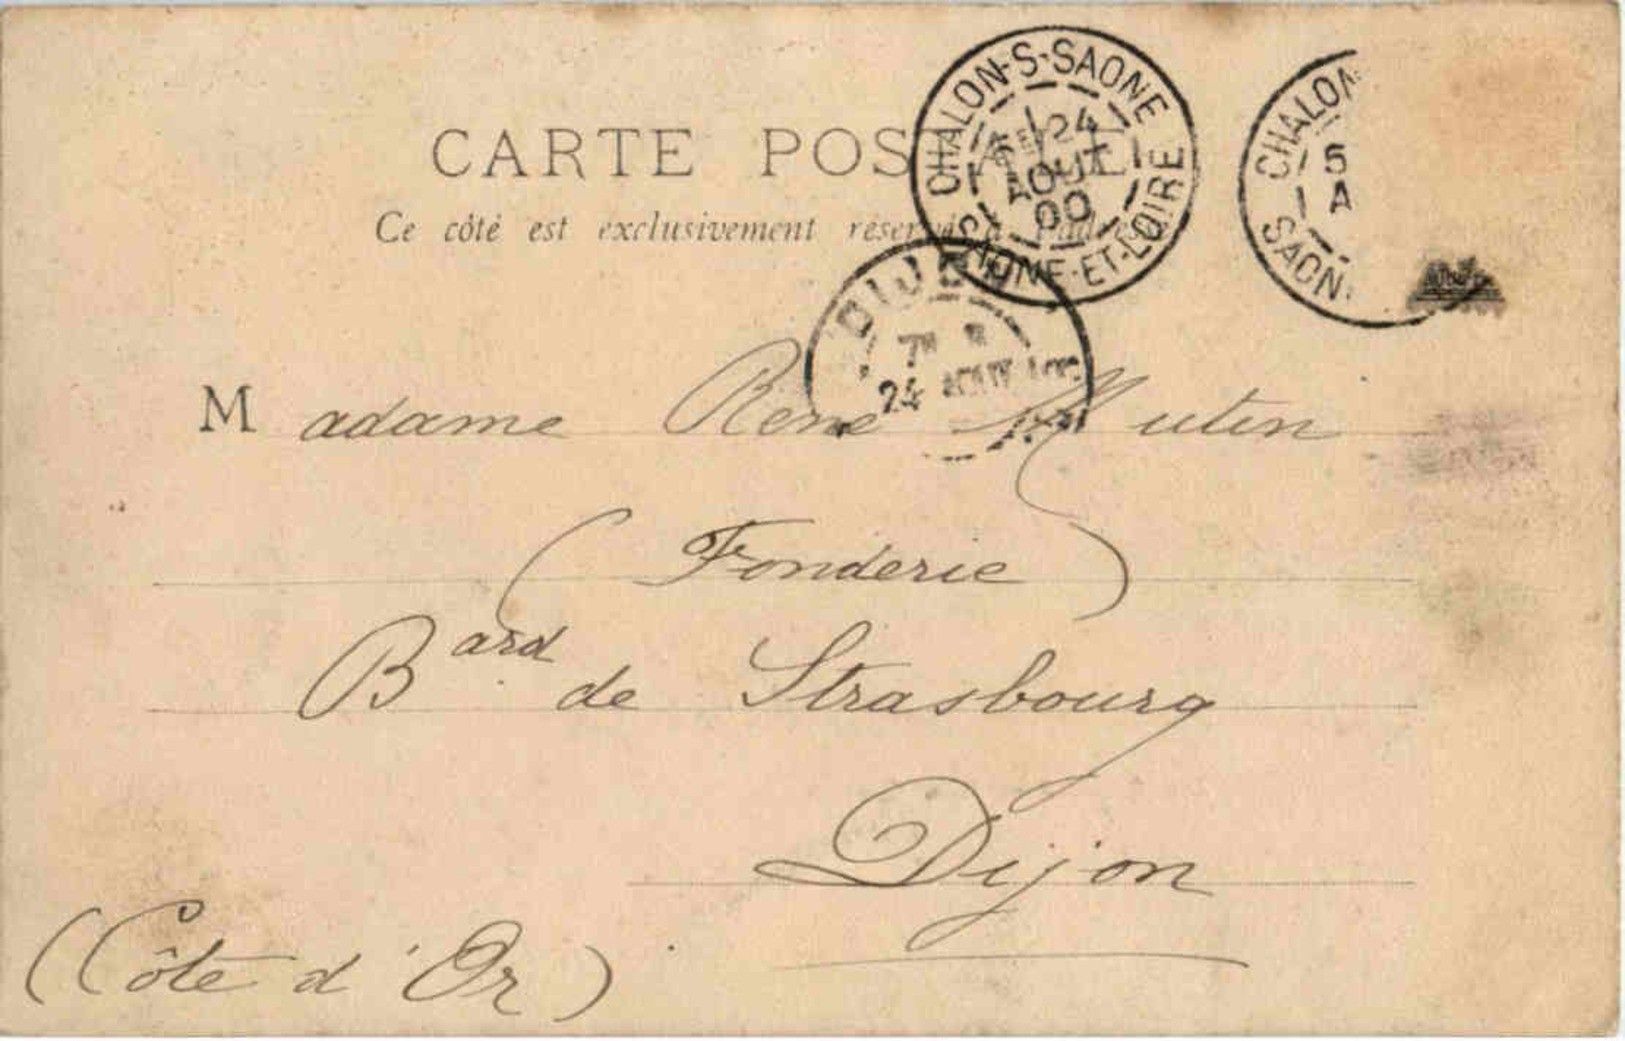 CARTE POSTALE
Ce côté est exclusivement réservé à
CHALON-S-SAONE
24
AOUT
00
SAONE-ET-LOIRE
CHALON
5
A
SAON
DIJON
7
24 AOUT
Madame René Mutin
(Fonderie)
Bard de Strasbourg
Dijon
(Côte d'Or)